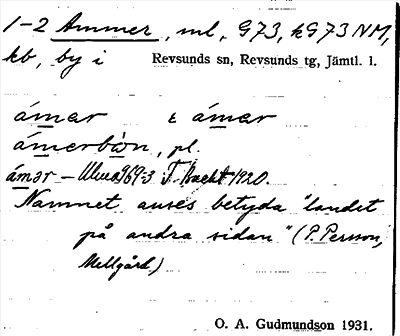 1-2 Ammer, ml, G73, kG73NM,
kb, by i Revsunds sn, Revsunds tg, Jämtl. l.
ámar & ámar
ámerbön, pl.
ámər – 969:3 T. 1920.
Namnet anses betyda "landet
på andra sidan" (P. Persson,
Mellgård)
O. A. Gudmundson 1931.